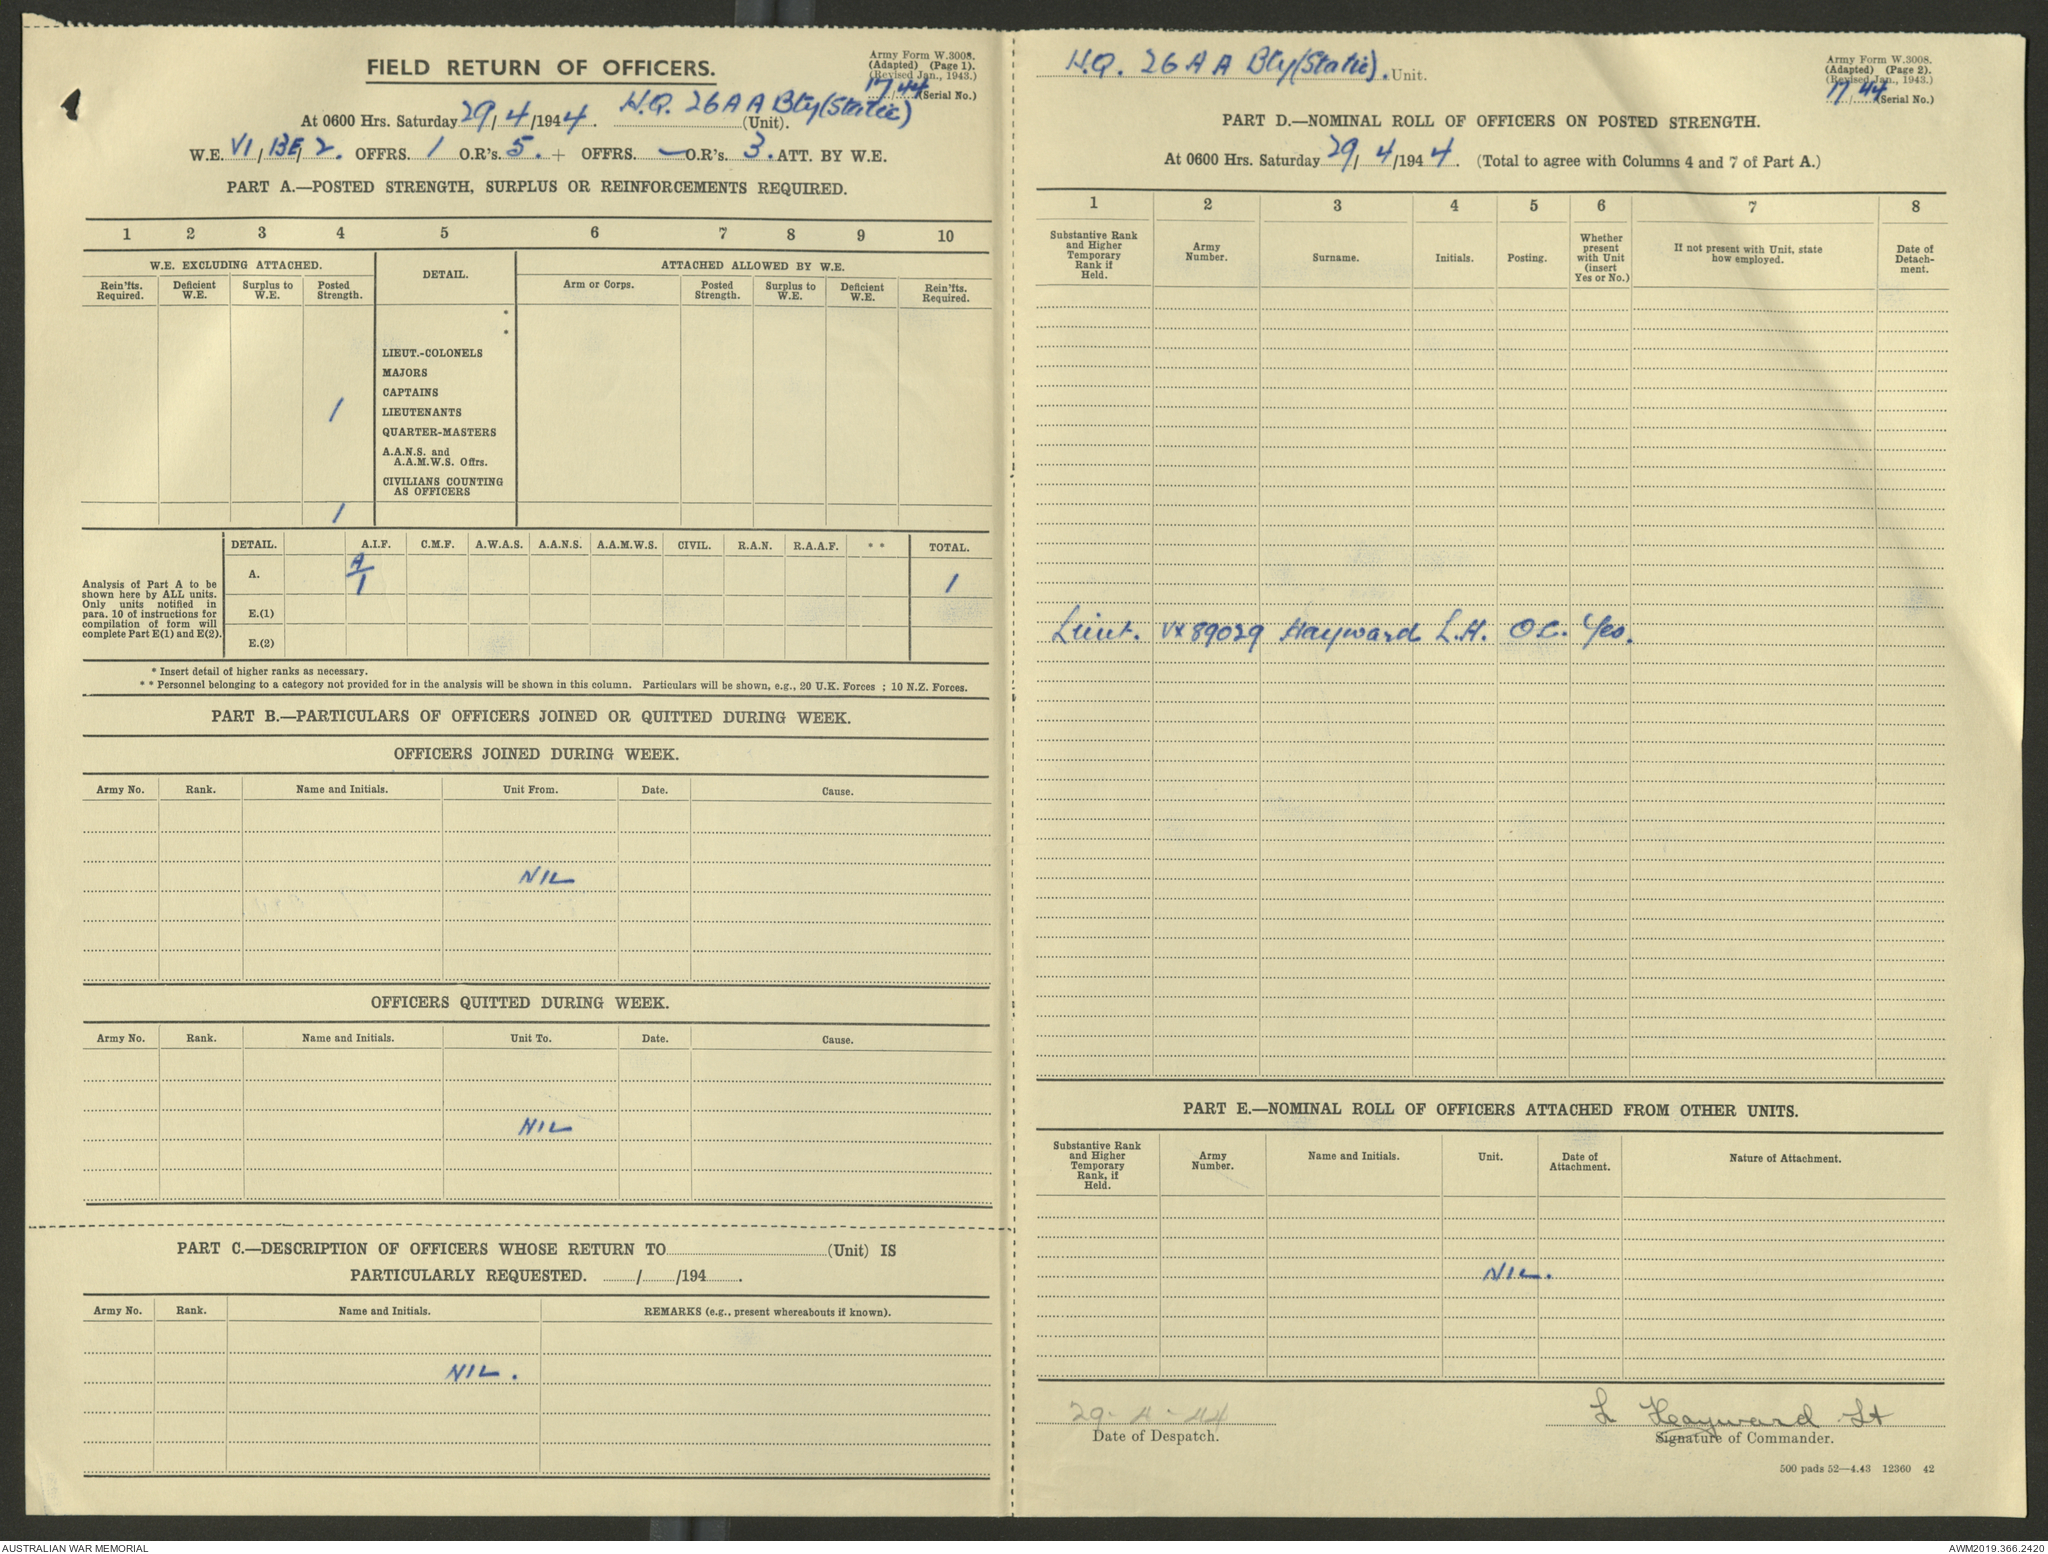 FIELD RETURN OF OFFICERS.
Army Form W.3008.
(Adapted) (Page 1).
(Revised Jan., 1943.)
17/44 (Serial No.)
At 0600 Hrs. Saturday 29/4/1944. H.Q. 26 A A Bty (Static) (Unit).
W.E. VI/13E/2. OFFRS. 1 O.R's. 5. + OFFRS. — O.R's. 3. ATT. BY W.E.
PART A.—POSTED STRENGTH, SURPLUS OR REINFORCEMENTS REQUIRED.
1 2 3 4 5 6 7 8 9 10
W.E. EXCLUDING ATTACHED. DETAIL. ATTACHED ALLOWED BY W.E.
Rein'fts. Required. Deficient W.E. Surplus to W.E. Posted Strength. Arm or Corps. Posted Strength. Surplus to W.E. Deficient W.E. Rein'fts. Required.
*
*
LIEUT.-COLONELS
MAJORS
CAPTAINS
1 LIEUTENANTS
QUARTER-MASTERS
A.A.N.S. and
A.A.M.W.S. Offrs.
CIVILIANS COUNTING
AS OFFICERS
1
Analysis of Part A to be
shown here by ALL units.
Only units notified in
para. 10 of instructions for
compilation of form will
complete Part E(1) and E(2).
DETAIL. A.I.F. C.M.F. A.W.A.S. A.A.N.S. A.A.M.W.S. CIVIL. R.A.N. R.A.A.F. * * TOTAL.
A. A/1 1
E.(1)
E.(2)
* Insert detail of higher ranks as necessary.
* * Personnel belonging to a category not provided for in the analysis will be shown in this column. Particulars will be shown, e.g., 20 U.K. Forces ; 10 N.Z. Forces.
PART B.—PARTICULARS OF OFFICERS JOINED OR QUITTED DURING WEEK.
OFFICERS JOINED DURING WEEK.
Army No. Rank. Name and Initials. Unit From. Date. Cause.
NIL
OFFICERS QUITTED DURING WEEK.
Army No. Rank. Name and Initials. Unit To. Date. Cause.
NIL
PART C.—DESCRIPTION OF OFFICERS WHOSE RETURN TO (Unit) IS
PARTICULARLY REQUESTED. / /194 .
Army No. Rank. Name and Initials. REMARKS (e.g., present whereabouts if known).
NIL.
H.Q. 26 A A Bty (Static). Unit.
Army Form W.3008.
(Adapted) (Page 2).
(Revised Jan., 1943.)
17/44 (Serial No.)
PART D.—NOMINAL ROLL OF OFFICERS ON POSTED STRENGTH.
At 0600 Hrs. Saturday 29/4/1944. (Total to agree with Columns 4 and 7 of Part A.)
1 2 3 4 5 6 7 8
Substantive Rank and Higher Temporary Rank if Held. Army Number. Surname. Initials. Posting. Whether present with Unit (insert Yes or No.) If not present with Unit, state how employed. Date of Detach-ment.
Lieut. VX89029 Hayward L.H. O.C. Yes.
PART E.—NOMINAL ROLL OF OFFICERS ATTACHED FROM OTHER UNITS.
Substantive Rank and Higher Temporary Rank, if Held. Army Number. Name and Initials. Unit. Date of Attachment. Nature of Attachment.
NIL.
29-4-44
Date of Despatch.
L Hayward Lt
Signature of Commander.
500 pads 52—4.43 12360 42
AUSTRALIAN WAR MEMORIAL
AWM2019.366.2420